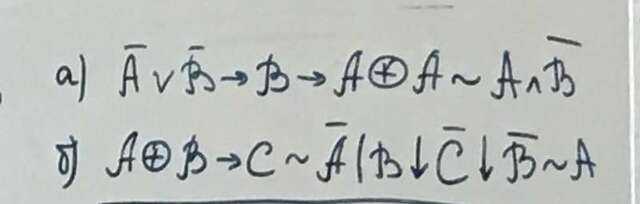 а) A̅ ∨ B̅ → B → A ⊕ A ~ A ∧ B̅
б) A ⊕ B → C ~ A̅ | B ↓ C̅ ↓ B̅ ~ A